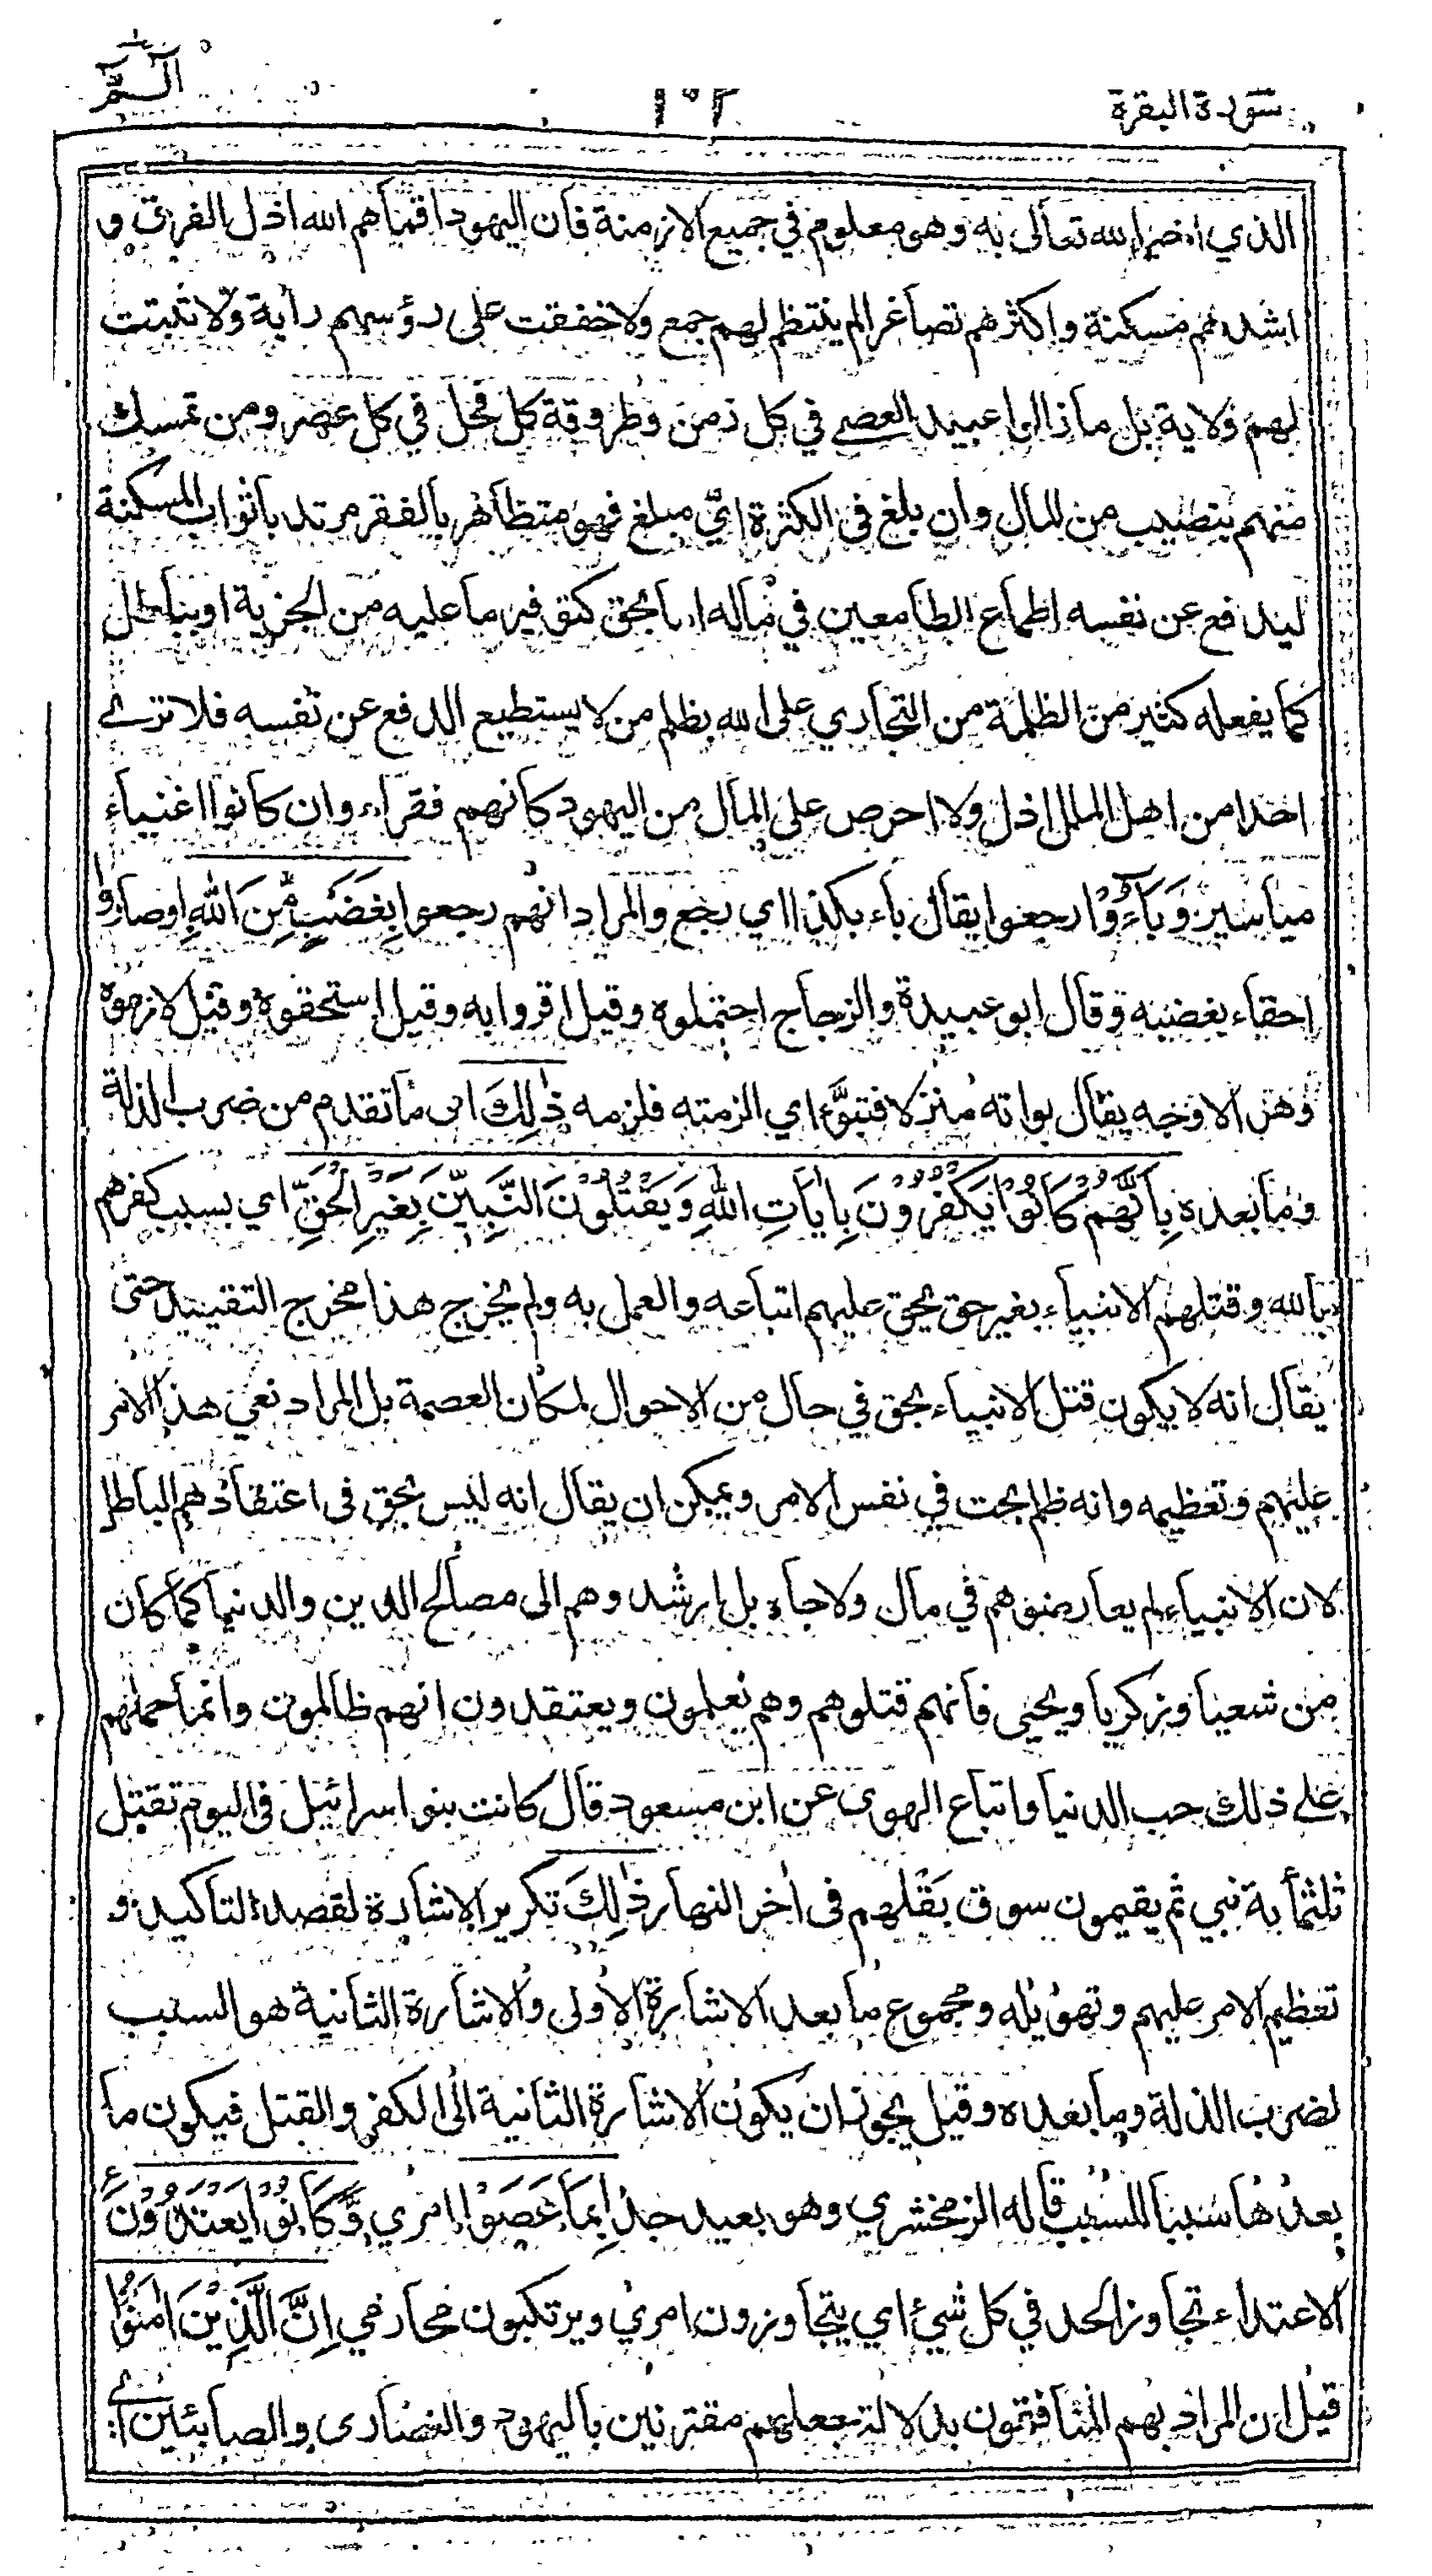 سورة البقرة
١٠٢
الٓمّ
الذي اخبر الله تعالى به وهو معلوم في جميع الازمنة فان اليهود اقمأهم الله اذل الفرق و
اشدهم مسكنة واكثرهم تصاغرا لم ينتظم لهم جمع ولا خفقت على رؤسهم راية ولا ثبتت
لهم ولاية بل ما زالوا عبيد العصي في كل زمن وطروقة كل فحل في كل عصر ومن تمسك
منهم بنصيب من المال وان بلغ في الكثرة اي مبلغ فهو متظاهر بالفقر مرتد باثواب المسكنة
ليدفع عن نفسه اطماع الطامعين في ماله اما بحق كتوفير ما عليه من الجزية او بباطل
كما يفعله كثير من الظلمة من التجاري على الله بظلم من لا يستطيع الدفع عن نفسه فلا ترى
احدا من اهل الملل اذل ولا احرص على المال من اليهود كانهم فقراء وان كانوا اغنياء
مياسير وَبَاءُوْا رجعوا يقال باء بكذا اي رجع والمراد انهم رجعوا بِغَضَبٍ مِّنَ اللهِ او صاروا
احقاء بغضبه وقال ابو عبيدة والزجاج احتملوه وقيل اقروا به وقيل استحقوه وقيل لازموه
وهو الاوجه يقال بواته منزلا فتبوَّء اي الزمته فلزمه ذٰلِكَ اى ما تقدم من ضرب الذلة
وما بعده بِاَنَّهُمْ كَانُوْا يَكْفُرُوْنَ بِاٰيَاتِ اللهِ وَيَقْتُلُوْنَ النَّبِيّٖنَ بِغَيْرِ الْحَقِّ اي بسبب كفرهم
بالله وقتلهم الانبياء بغير حق يحق عليهم اتباعه والعمل به ولم يخرج هذا مخرج التقييد حتى
يقال انه لا يكون قتل الانبياء بحق في حال من الاحوال لمكان العصمة بل المراد نعي هذا الامر
عليهم وتعظيمه وانه ظلم بحت في نفس الامر ويمكن ان يقال انه ليس بحق فى اعتقادهم الباطل
لان الانبياء لم يعارضوهم في مال ولا جاه بل ارشدوهم الى مصالح الدين والدنيا كما كان
من شعيا وزكريا ويحيى فانهم قتلوهم وهم يعلمون ويعتقدون انهم ظالمون وانما حملهم
على ذلك حب الدنيا واتباع الهوى عن ابن مسعود قال كانت بنو اسرائيل فى اليوم تقتل
ثلثمأية نبي ثم يقيمون سوق بقلهم فى أخر النهار ذٰلِكَ تكرير الاشارة لقصد التاكيد و
تعظيم الامر عليهم وتهويله ومجموع ما بعد الاشارة الاولى والاشارة الثانية هو السبب
لضرب الذلة وما بعده وقيل يجوز ان يكون الاشارة الثانية الى الكفر والقتل فيكون ما
بعدها سببا للسبب قاله الزمخشري وهو بعيد جدا بِمَا عَصَوْا امري وَّكَانُوْا يَعْتَدُوْنَ ع
الاعتداء تجاوز الحد في كل شيئ اي يتجاوزون امري ويرتكبون محارمي اِنَّ الَّذِيْنَ اٰمَنُوْا
قيل ان المراد بهم المنافقون بدلالة جعلهم مقترنين باليهود والنصارى والصابئين اي